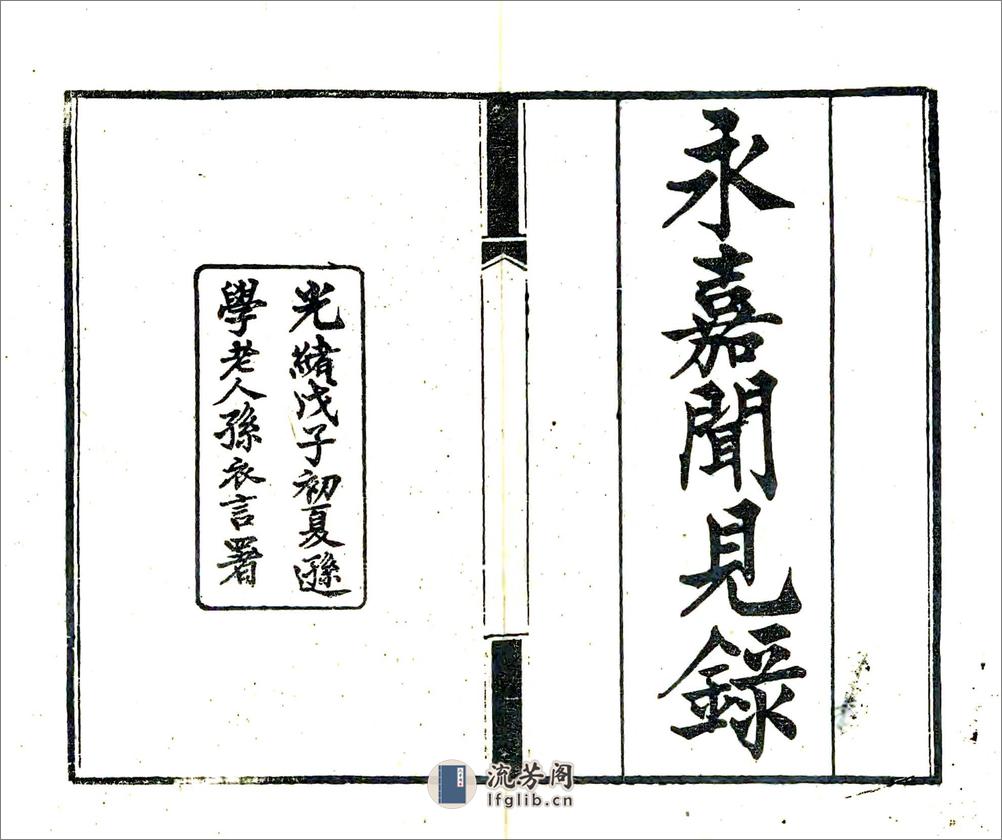 永嘉聞見錄
光緒戊子初夏遜
學老人孫衣言署
流芳阁
lfglib.cn